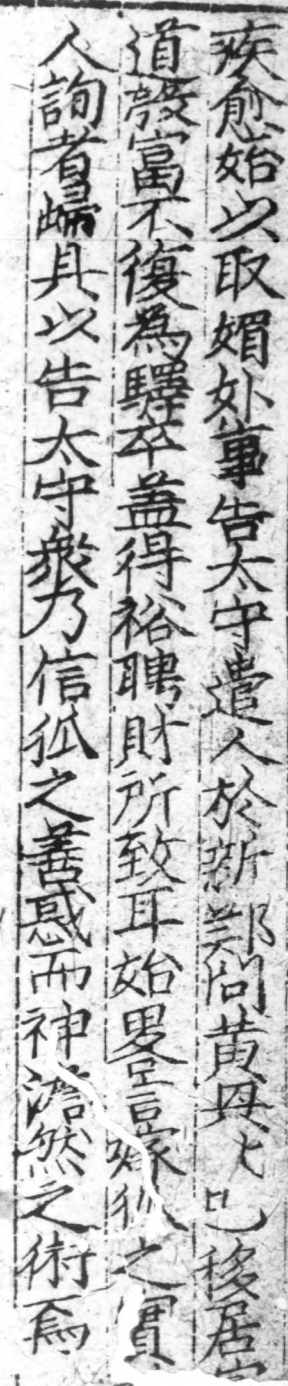 疾愈始以取媚外事告太守遣人於新鄭問黄興〻已移居
道殷富不復為驛卒盖得裕聘財所致耳始畧言嫁狐之實
人詢者歸具以告太守衆乃信狐之善惑而神澹然之術焉